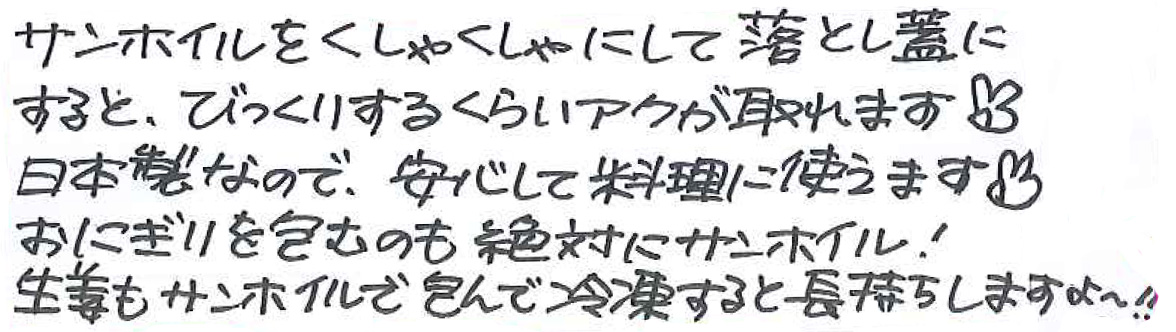 サンホイルをくしゃくしゃにして落とし蓋に
すると、びっくりするくらいアクが取れます♡
日本製なので、安心して料理に使えます♡
おにぎりを包むのも絶対にサンホイル!
生姜もサンホイルで包んで冷凍すると長持ちしますよ〜!!